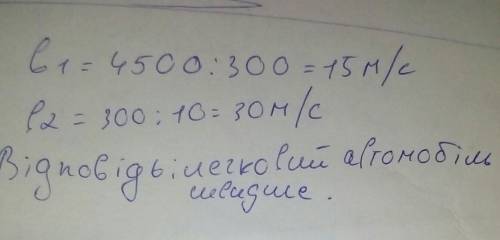 υ1 = 4500 : 300 = 15 м/с
υ2 = 300 : 10 = 30 м/с
Відповідь: легковий автомобіль
швидше.